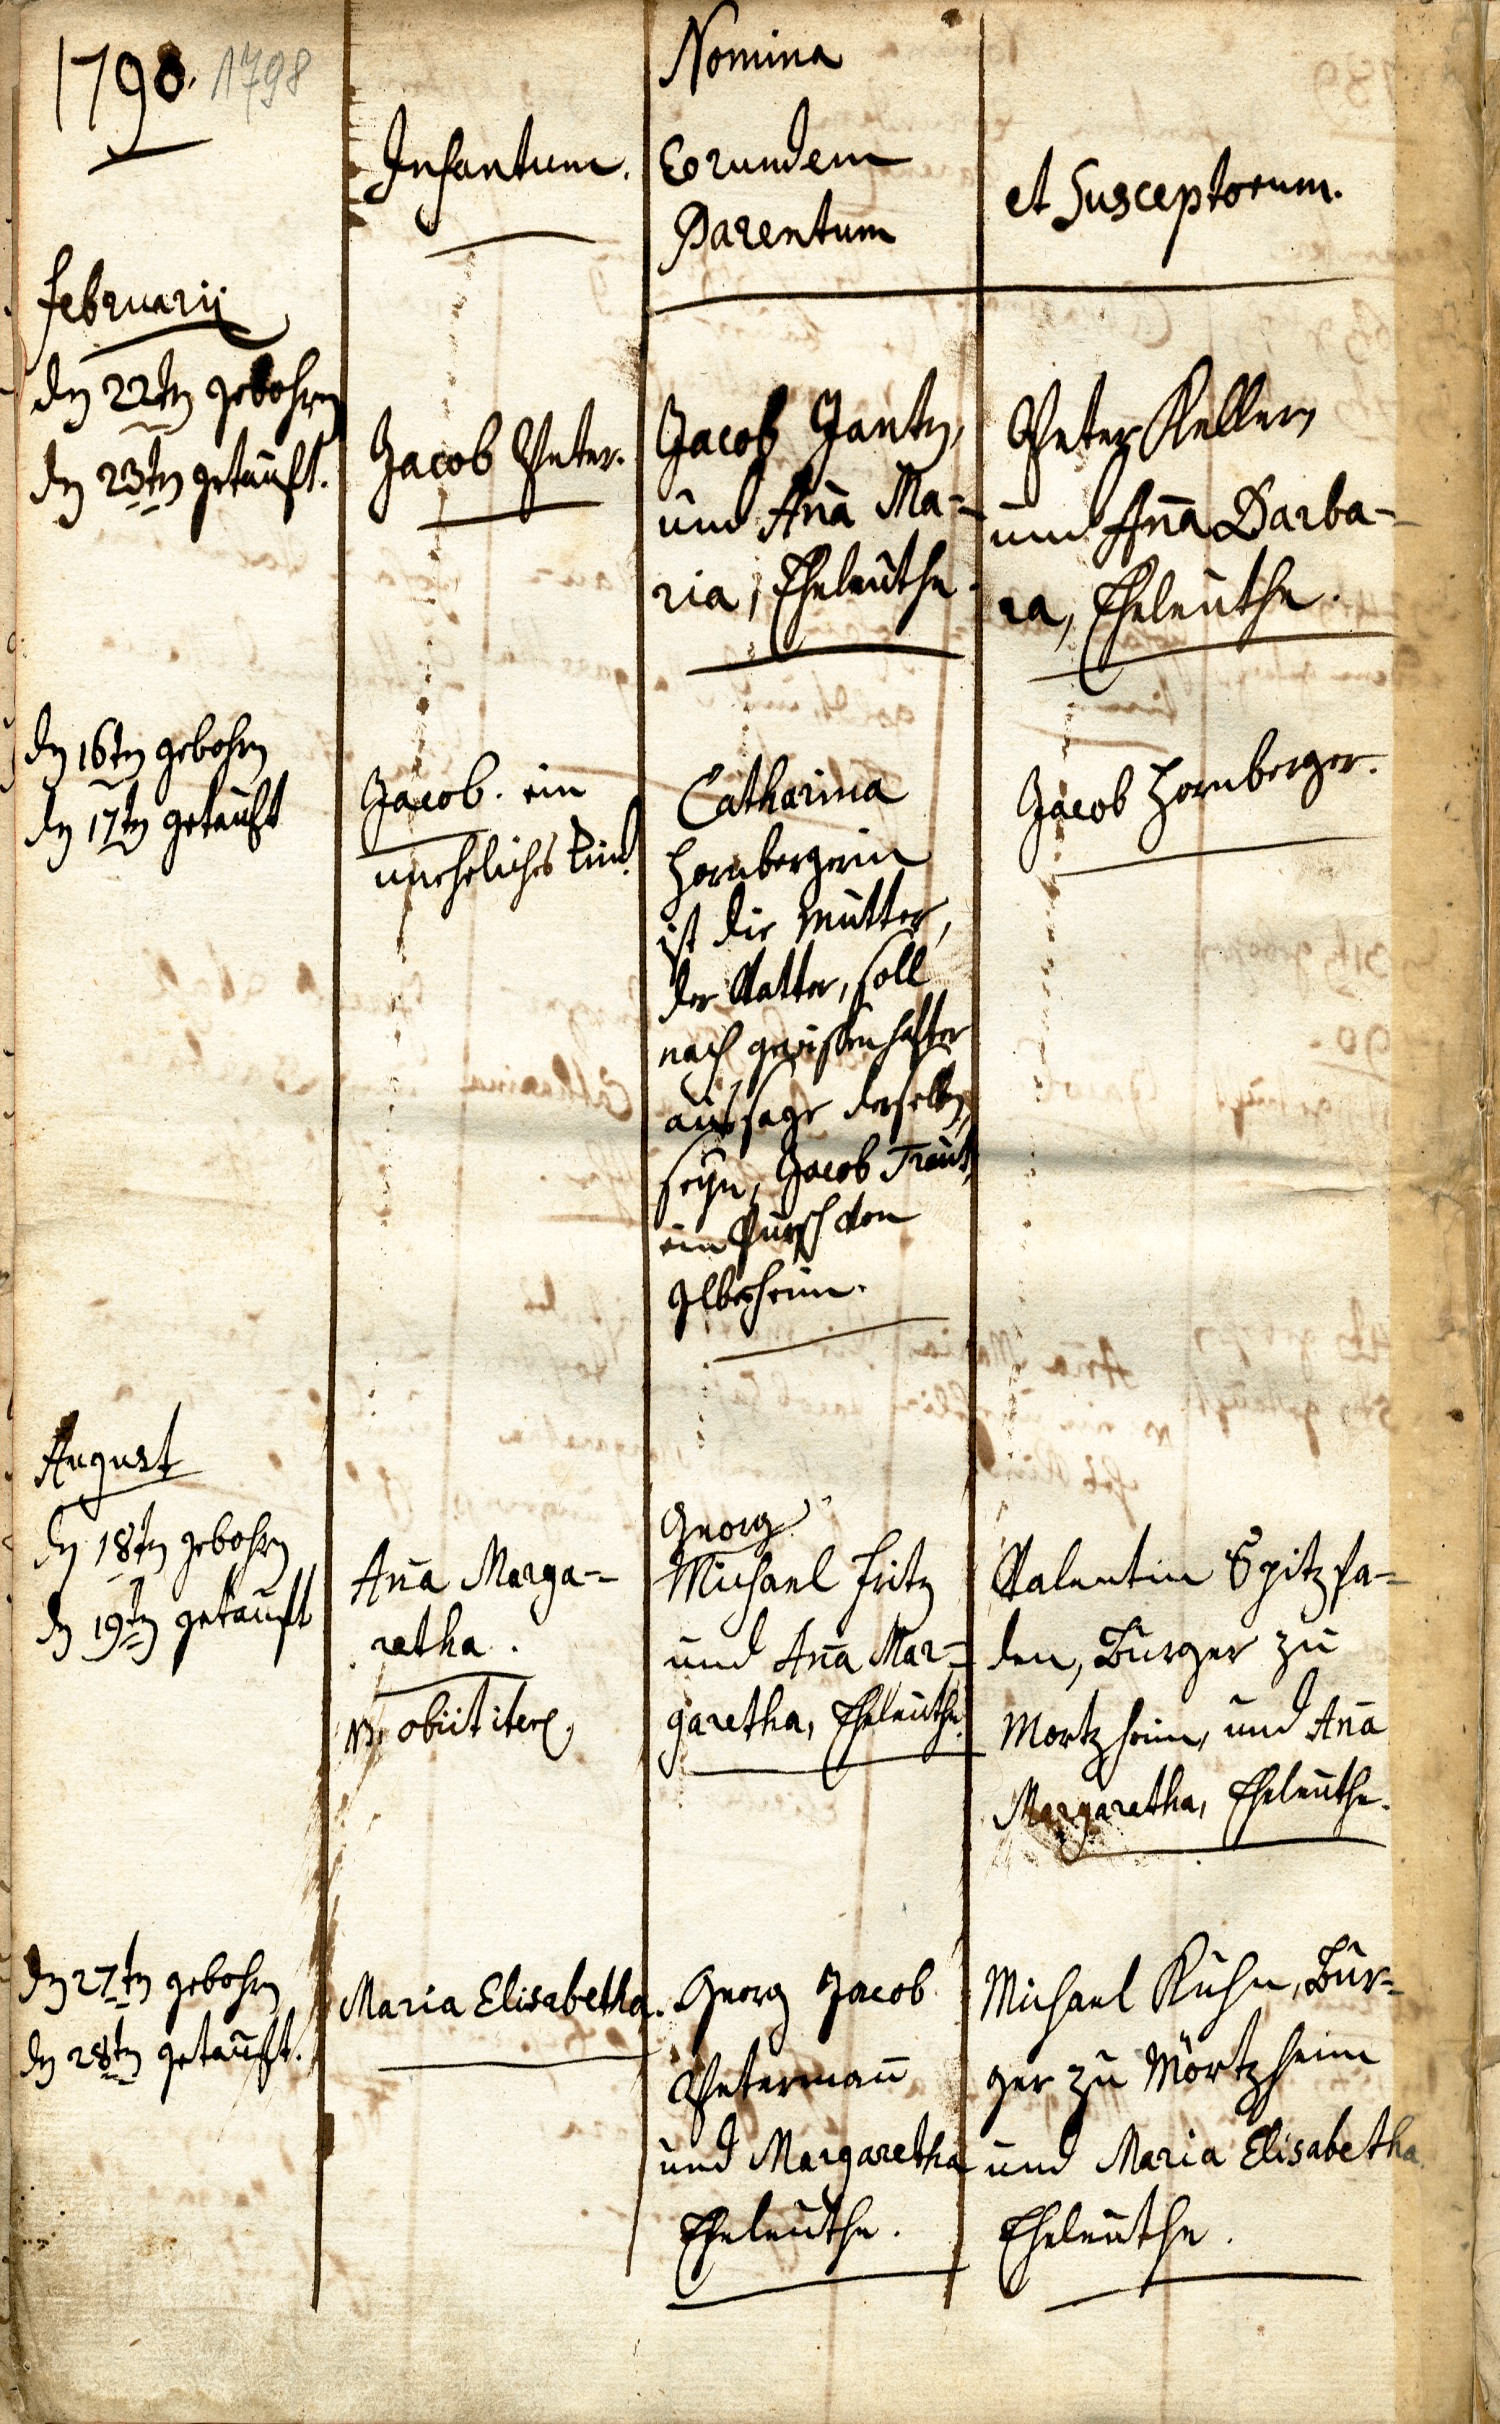 1798. 1798
Nomina
Infantum.
Eorundem
Parentum
et Susceptorum.
februarij
den 22ten gebohren
den 23ten getauft.
Jacob Peter.
Jacob Jantz,
und Aña Ma=
ria, Eheleuthe.
Peter Keller,
und Aña Barba=
ra, Eheleuthe.
den 16ten gebohren
den 17ten getauft
Jacob. ein
uneheliches Kind.
Catharina
Hornbergerin
ist die Mutter,
der Vatter, soll
nach gewissenhafter
aussage derselben,
seyn, Jacob Traut,
ein Pursch von
Ilbesheim.
Jacob Hornberger.
August
den 18ten gebohren
den 19ten getauft
Aña Marga=
retha.
NB. obiit iter
Georg
Michael Fritz
und Aña Mar=
garetha, Eheleuthe.
Valentin Spitzfa=
den, Burger zu
Mortzheim, und Aña
Margaretha, Eheleuthe.
den 27ten gebohren
den 28ten getauft.
Maria Elisabetha.
Georg Jacob
Petermañ
und Margaretha
Eheleuthe.
Michael Kuhn, Bur=
ger zu Mörtzheim
und Maria Elisabetha.
Eheleuthe.